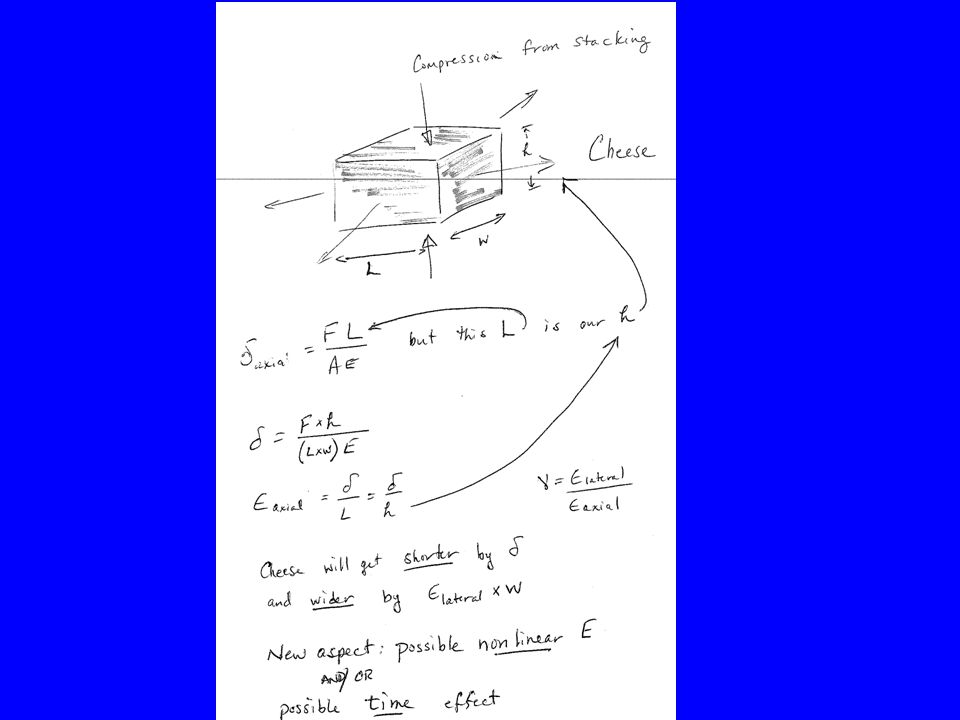 Compression from stacking
h
Cheese
W
L
δaxial = F L / A E but this L is our h
δ = F × h / (L×W) E
Eaxial = δ / L = δ / h
γ = Elateral / Eaxial
Cheese will get shorter by δ
and wider by Elateral × W
New aspect: possible nonlinear E
AND/OR
possible time effect